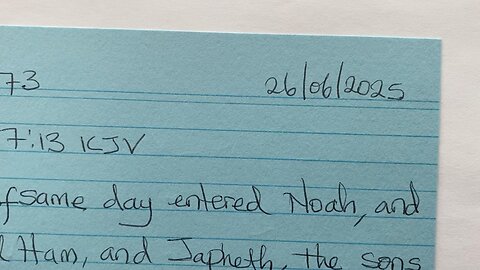 73 26/06/2025
7:13 KJV
fsame day entered Noah, and
Ham, and Japheth, the sons